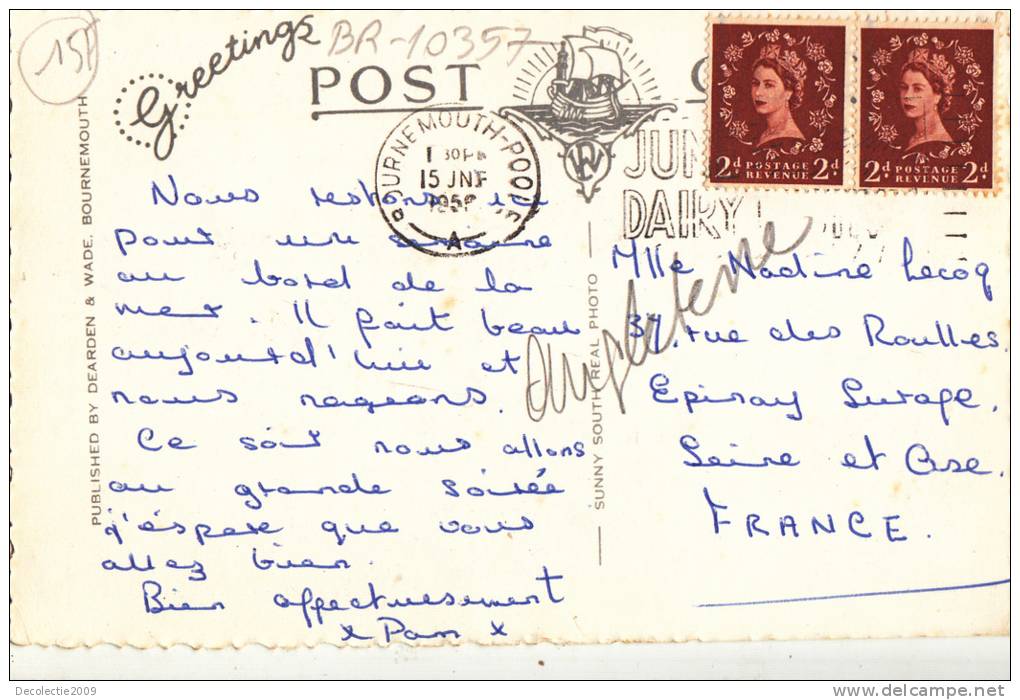 15F
Greetings
BR-10357
POST
BOURNEMOUTH-POOLE
15 JNE
A
JUN
DAIRY
2d POSTAGE REVENUE 2d
2d POSTAGE REVENUE 2d
PUBLISHED BY DEARDEN & WADE, BOURNEMOUTH
SUNNY SOUTH REAL PHOTO
Nous restons ici
pour une semaine
au bord de la
mer. Il fait beau
aujourd'hui et
nous nageons.
Ce soir nous allons
au grande soirée
j'éspere que vous
allez bien.
Bien affectueusement
x Pam x
Angleterre
Mlle Nadine Lecoq
37, rue des Roulles.
Epinay
Seine et Oise.
FRANCE.
Decolectie2009
delcampe.net